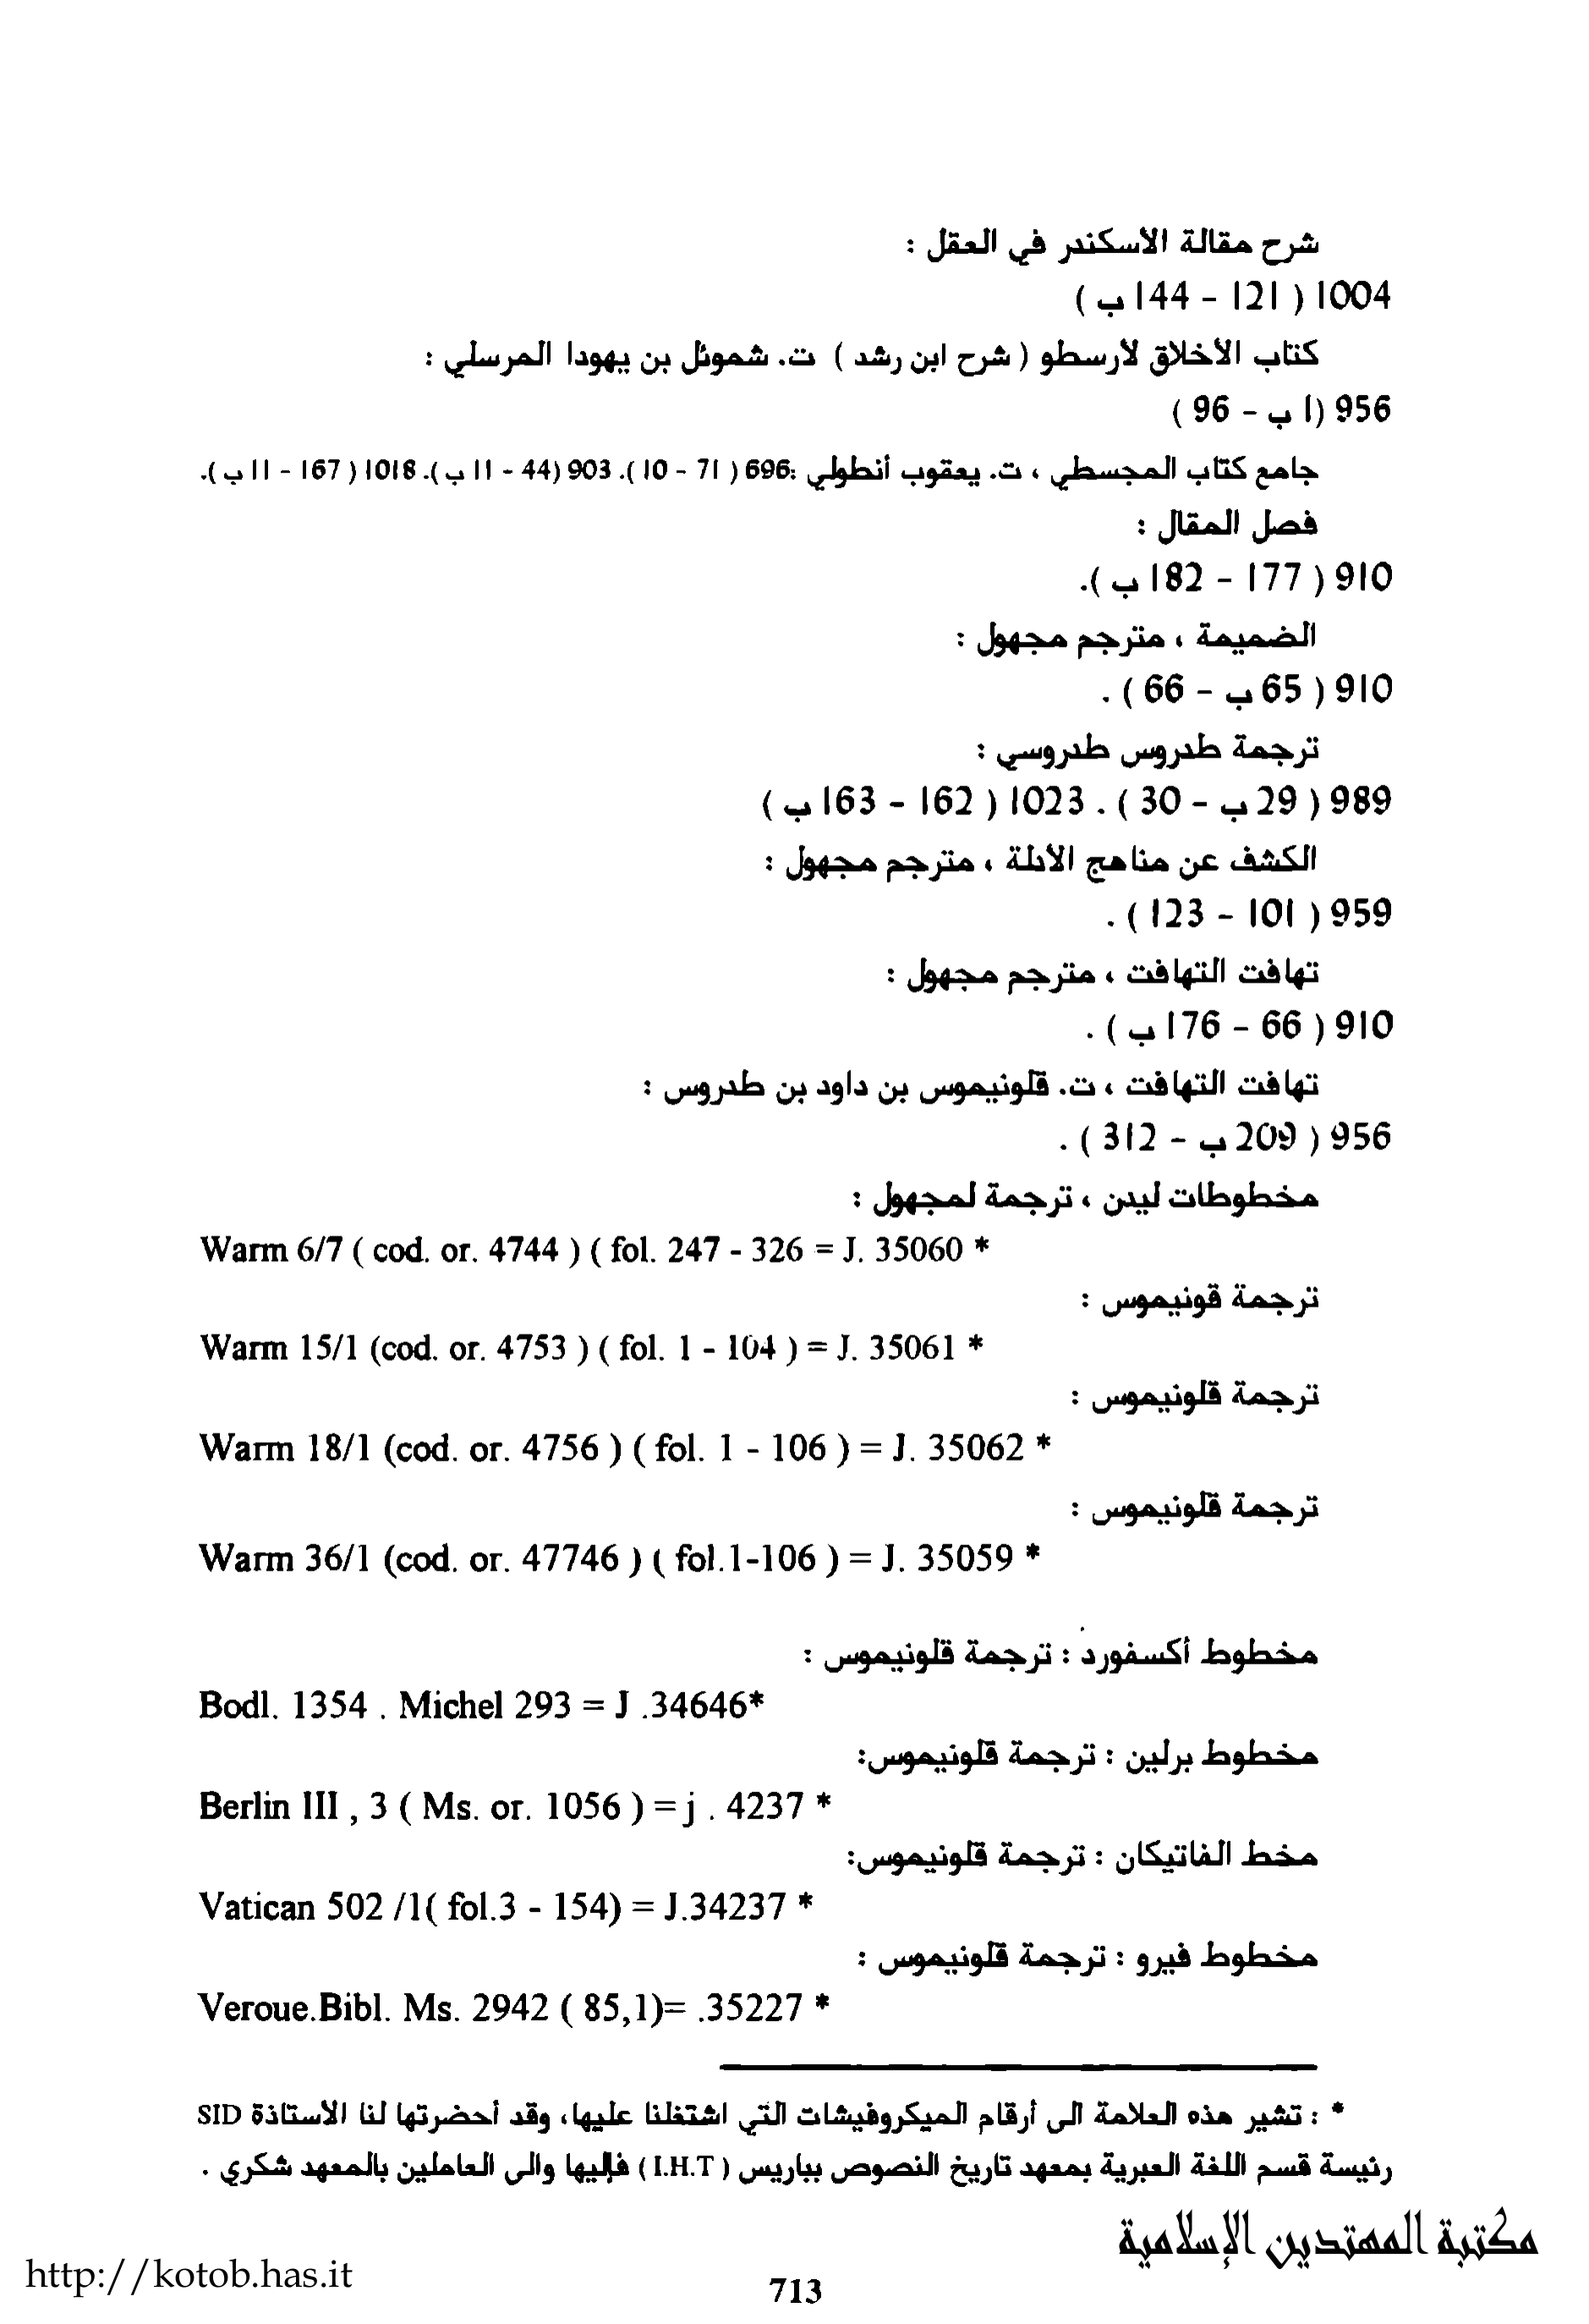 شرح مقالة الاسكندر في العقل :
1004 ( 121 - 144 ب )
كتاب الأخلاق لأرسطو ( شرح ابن رشد ) ت. شموئل بن يهودا المرسلي :
956 (1 ب - 96 )
جامع كتاب المجسطي ، ت. يعقوب أنطولي :696 ( 71 - 10 ). 903 (44 - 11 ب ). 1018 ( 167 - 11 ب ).
فصل المقال :
910 ( 177 - 182 ب ).
الضميمة ، مترجم مجهول :
910 ( 65 ب - 66 ) .
ترجمة طدروس طدروسي :
989 ( 29 ب - 30 ) . 1023 ( 162 - 163 ب )
الكشف عن مناهج الأدلة ، مترجم مجهول :
959 ( 101 - 123 ) .
تهافت التهافت ، مترجم مجهول :
910 ( 66 - 176 ب ) .
تهافت التهافت ، ت. قلونيموس بن داود بن طدروس :
956 ( 209 ب - 312 ) .
مخطوطات ليدن ، ترجمة لمجهول :
Warm 6/7 ( cod. or. 4744 ) ( fol. 247 - 326 = J. 35060 *
ترجمة قونيموس :
Warm 15/1 (cod. or. 4753 ) ( fol. 1 - 104 ) = J. 35061 *
ترجمة قلونيموس :
Warm 18/1 (cod. or. 4756 ) ( fol. 1 - 106 ) = J. 35062 *
ترجمة قلونيموس :
Warm 36/1 (cod. or. 47746 ) ( fol.1-106 ) = J. 35059 *
مخطوط أكسفورد : ترجمة قلونيموس :
Bodl. 1354 . Michel 293 = J .34646*
مخطوط برلين : ترجمة قلونيموس:
Berlin III , 3 ( Ms. or. 1056 ) = j . 4237 *
مخط الفاتيكان : ترجمة قلونيموس:
Vatican 502 /1( fol.3 - 154) = J.34237 *
مخطوط فيرو : ترجمة قلونيموس :
Veroue.Bibl. Ms. 2942 ( 85,1)= .35227 *
* : تشير هذه العلامة الى أرقام الميكروفيشات التي اشتغلنا عليها، وقد أحضرتها لنا الاستاذة SID
رئيسة قسم اللغة العبرية بمعهد تاريخ النصوص بباريس ( I.H.T ) فإليها والى العاملين بالمعهد شكري .
مكتبة المهتدين الإسلامية
http://kotob.has.it
713